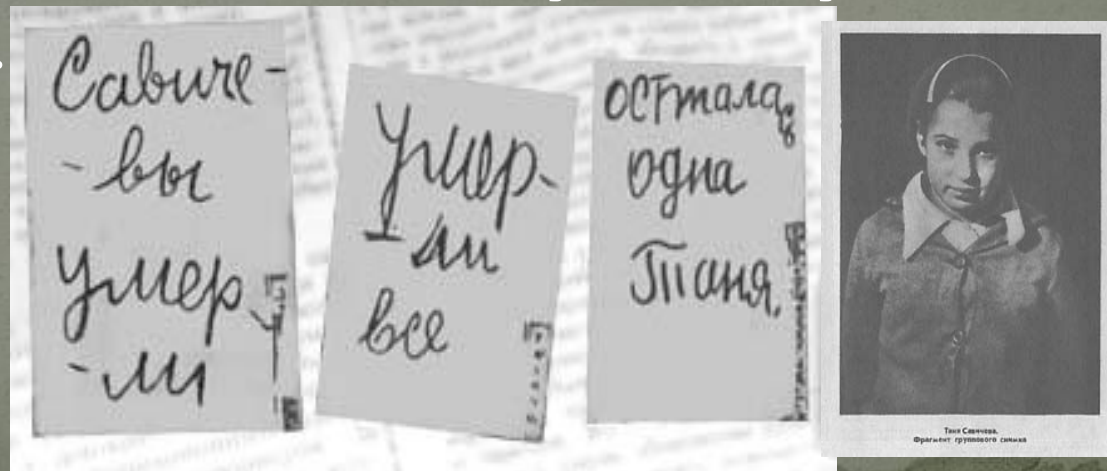 Савиче-
-вы
умер
-ли
Умер-
-ли
все
осталась
одна
Таня.
Таня Савичева.
Фрагмент группового снимка